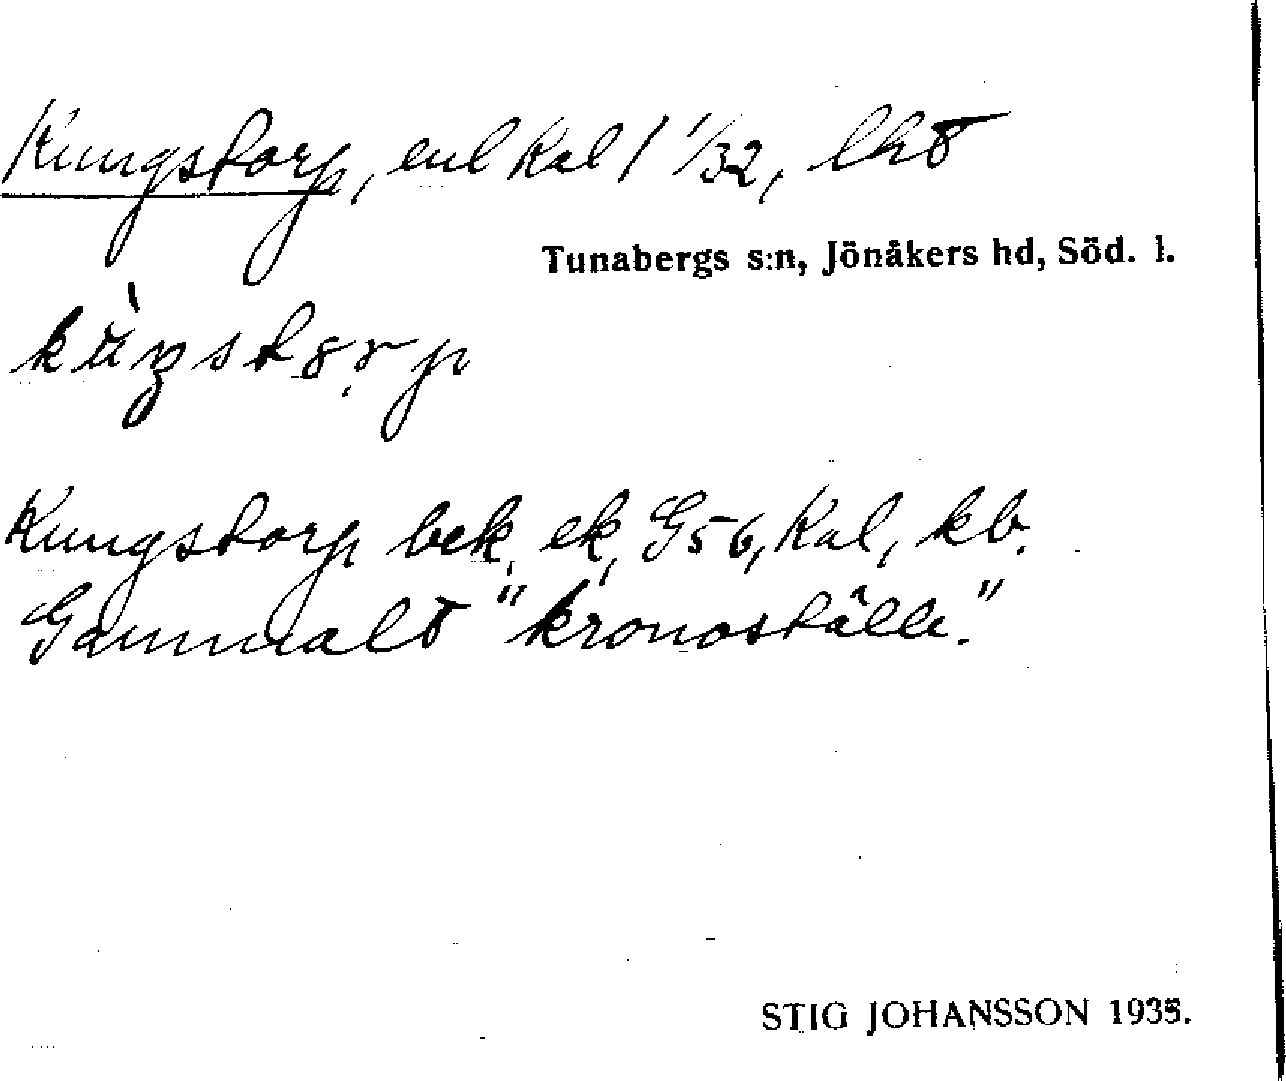 Kungstorp, enl Kal 1 1/32, lht
Tunabergs s:n, Jönåkers hd, Söd. l.
Kungstorp bek, ek, G56, Kal, kb.
Gammalt "kronoställe."
STIG JOHANSSON 1935.